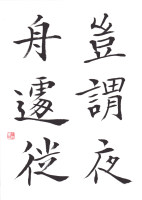 豈謂夜
舟遽從